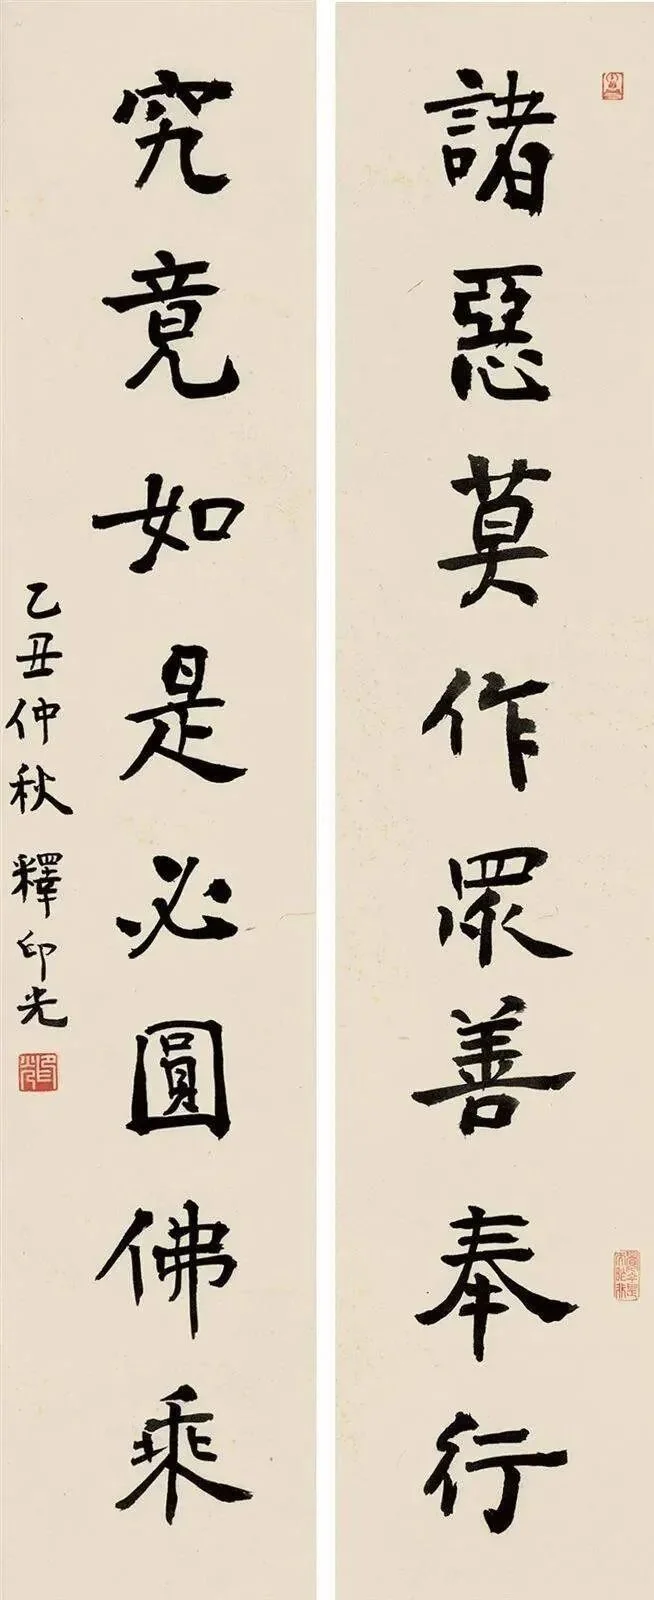 諸惡莫作眾善奉行
究竟如是必圓佛乘
乙丑仲秋釋印光